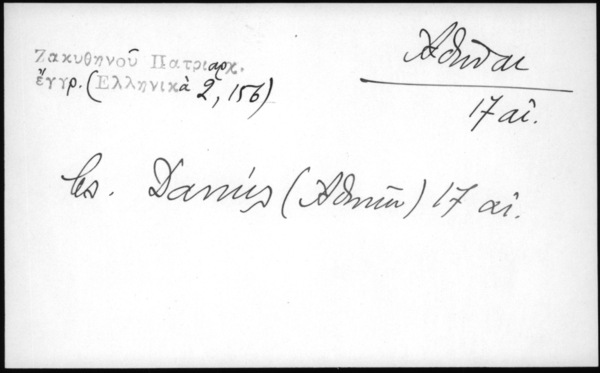 Ζακυθηνοῦ Πατριαρχ.
ἔγγρ. (Ἑλληνικὰ 2, 156)
Ἀθῆναι
17 αἰ.
Δανιήλ (Ἀθηνῶν) 17 αἰ.